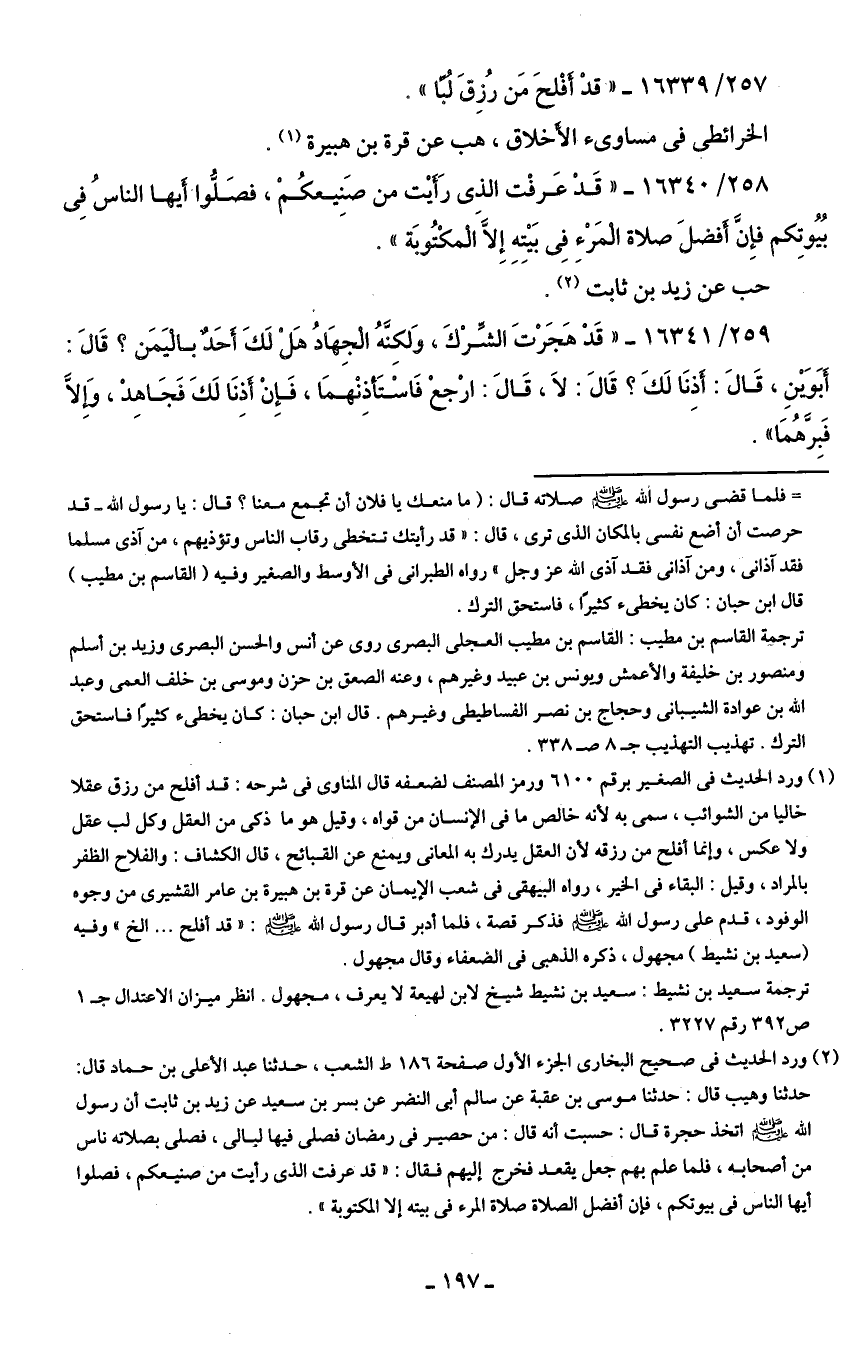 ٢٥٧/ ١٦٣٣٩ ـ « قدْ أَفْلحَ مَن رُزِقَ لُبّا » .
الخرائطى فى مساوىء الأخلاق ، هب عن قرة بن هبيرة (١) .
٢٥٨/ ١٦٣٤٠ ـ « قَـدْ عَـرفْت الذِى رَأَيْت من صَنِيـعكُـمْ ، فصَـلُّوا أيهـا الناسُ فِى
بُيُوتِكم فإِنَّ أَفضلَ صلاة المَرْءِ فِى بَيْتِهِ إِلاَّ المَكْتُوبَة » .
حب عن زيد بن ثابت (٢) .
٢٥٩/ ١٦٣٤١ ـ « قَدْ هَجَرْتَ الشِّرْكَ ، ولَكِنَّهُ الجِهادُ هَلْ لَكَ أَحَدٌ بـالْيَمَنِ ؟ قَالَ :
أَبَوَيْنِ ، قَـالَ : أَذِنَا لَكَ ؟ قَالَ : لاَ ، قَـالَ : ارْجِعْ فَاسْـتَأذِنْهـمَا ، فَـإِنْ أَذِنَا لَكَ فَجَـاهِدْ ، وَإِلاَّ
فَبِرَّهُمَا» .
= فلمـا قضـى رسول الله ﷺ صـلاته قال : ( ما منعـك يا فلان أن تجمع مـعنا ؟ قـال : يا رسول الله ـ قـد
حرصت أن أضع نفسى بالمكان الذى ترى ، قال : « قد رأيتك تـتخطى رقاب الناس وتؤذيهم ، من آذى مسلما
فقد آذانى ، ومن آذانى فقـد آذى الله عز وجل » رواه الطبرانى فى الأوسط والصغير وفيه ( القاسم بن مطيب )
قال ابن حبان : كان يخطىء كثيرًا ، فاستحق الترك .
ترجمة القاسم بن مطيب : القاسم بن مطيب العـجلى البصرى روى عن أنس والحسن البصرى وزيد بن أسلم
ومنصور بن خليفة والأعمش ويونس بن عبيد وغيرهم ، وعنه الصعق بن حزن وموسى بن خلف العمى وعبد
الله بن عوادة الشيبانى وحجاج بن نصـر الفساطيطى وغيـرهم . قال ابن حبان : كـان يخطىء كثيرًا فـاستحق
الترك . تهذيب التهذيب جـ ٨ صـ ٣٣٨ .
(١) ورد الحديث فى الصغير برقم ٦١٠٠ ورمز المصنف لضعفه قال المناوى فى شرحه : قـد أفلح من رزق عقلا
خاليا من الشوائب ، سمى به لأنه خالص ما فى الإنسـان من قواه ، وقيل هو ما ذكى من العقل وكل لب عقل
ولا عكس ، وإنما أفلح من رزقه لأن العقل يدرك به المعانى ويمنع عن القبـائح ، قال الكشاف : والفلاح الظفر
بالمراد ، وقيل : البقاء فى الخير ، رواه البيهقى فى شعب الإيمـان عن قرة بن هبيرة بن عامر القشيرى من وجوه
الوفود ، قدم على رسول الله ﷺ فذكـر قصة ، فلما أدبر قـال رسول الله ﷺ : « قد أفلح ... الخ » وفـيه
(سعيد بن نشيط ) مجهول ، ذكره الذهبى فى الضعفاء وقال مجهول .
ترجمة سـعيد بن نشيط : سـعيد بن نشيط شـيـخ لابن لهيعة لا يعرف ، مـجهول . انظر ميـزان الاعتدال جـ ١
ص٣٩٢ رقم ٣٢٢٧ .
(٢) ورد الحديث فى صـحيح البخارى الجزء الأول صـفحة ١٨٦ ط الشعب ، حـدثنا عبد الأعلى بن حـماد قال:
حدثنا وهيب قال : حدثنا مـوسى بن عقبة عن سالم أبى النضر عن بسر بن سـعيد عن زيد بن ثابت أن رسول
الله ﷺ اتخذ حجرة قـال : حسبت أنه قال : من حصيـر فى رمضان فصلى فيها ليـالى ، فصلى بصلاته ناس
من أصحابـه ، فلما علم بهم جعل يقعـد فخرج إليهم فـقال : « قد عرفت الذى رأيت من صنيـعكم ، فصلوا
أيها الناس فى بيوتكم ، فإن أفضل الصلاة صلاة المرء فى بيته إلا المكتوبة » .
ـ ١٩٧ ـ